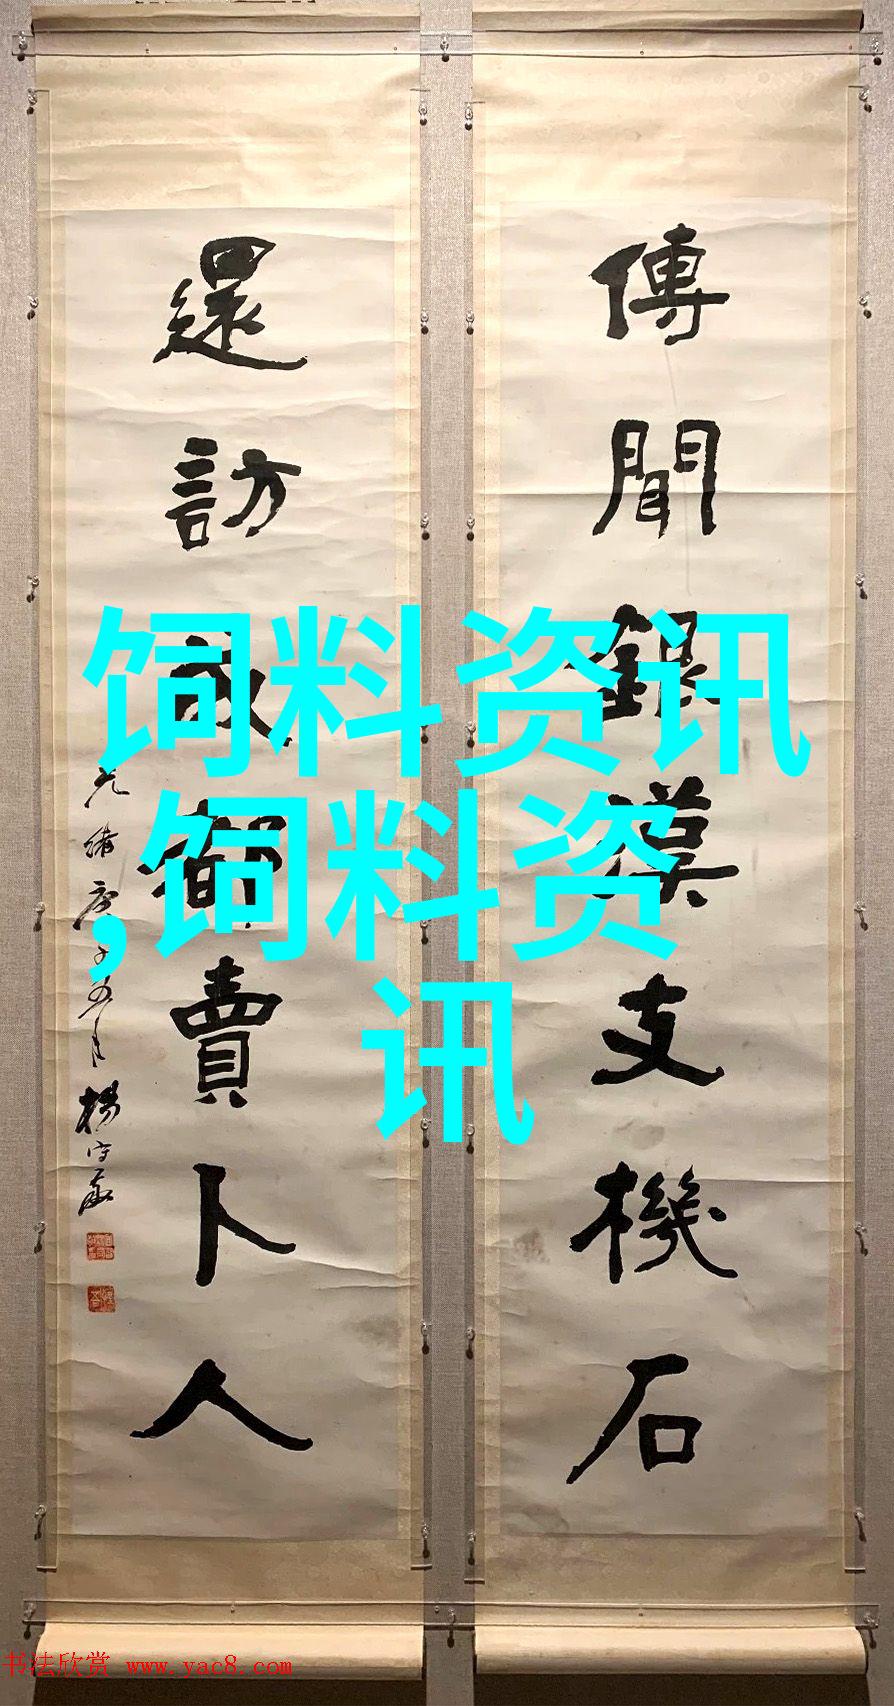 傳聞銀漢支機石
還訪成都賣卜人
光緒庚子五月楊守敬
饲料资讯
,饲料资
讯
书法欣赏 www.yac8.com